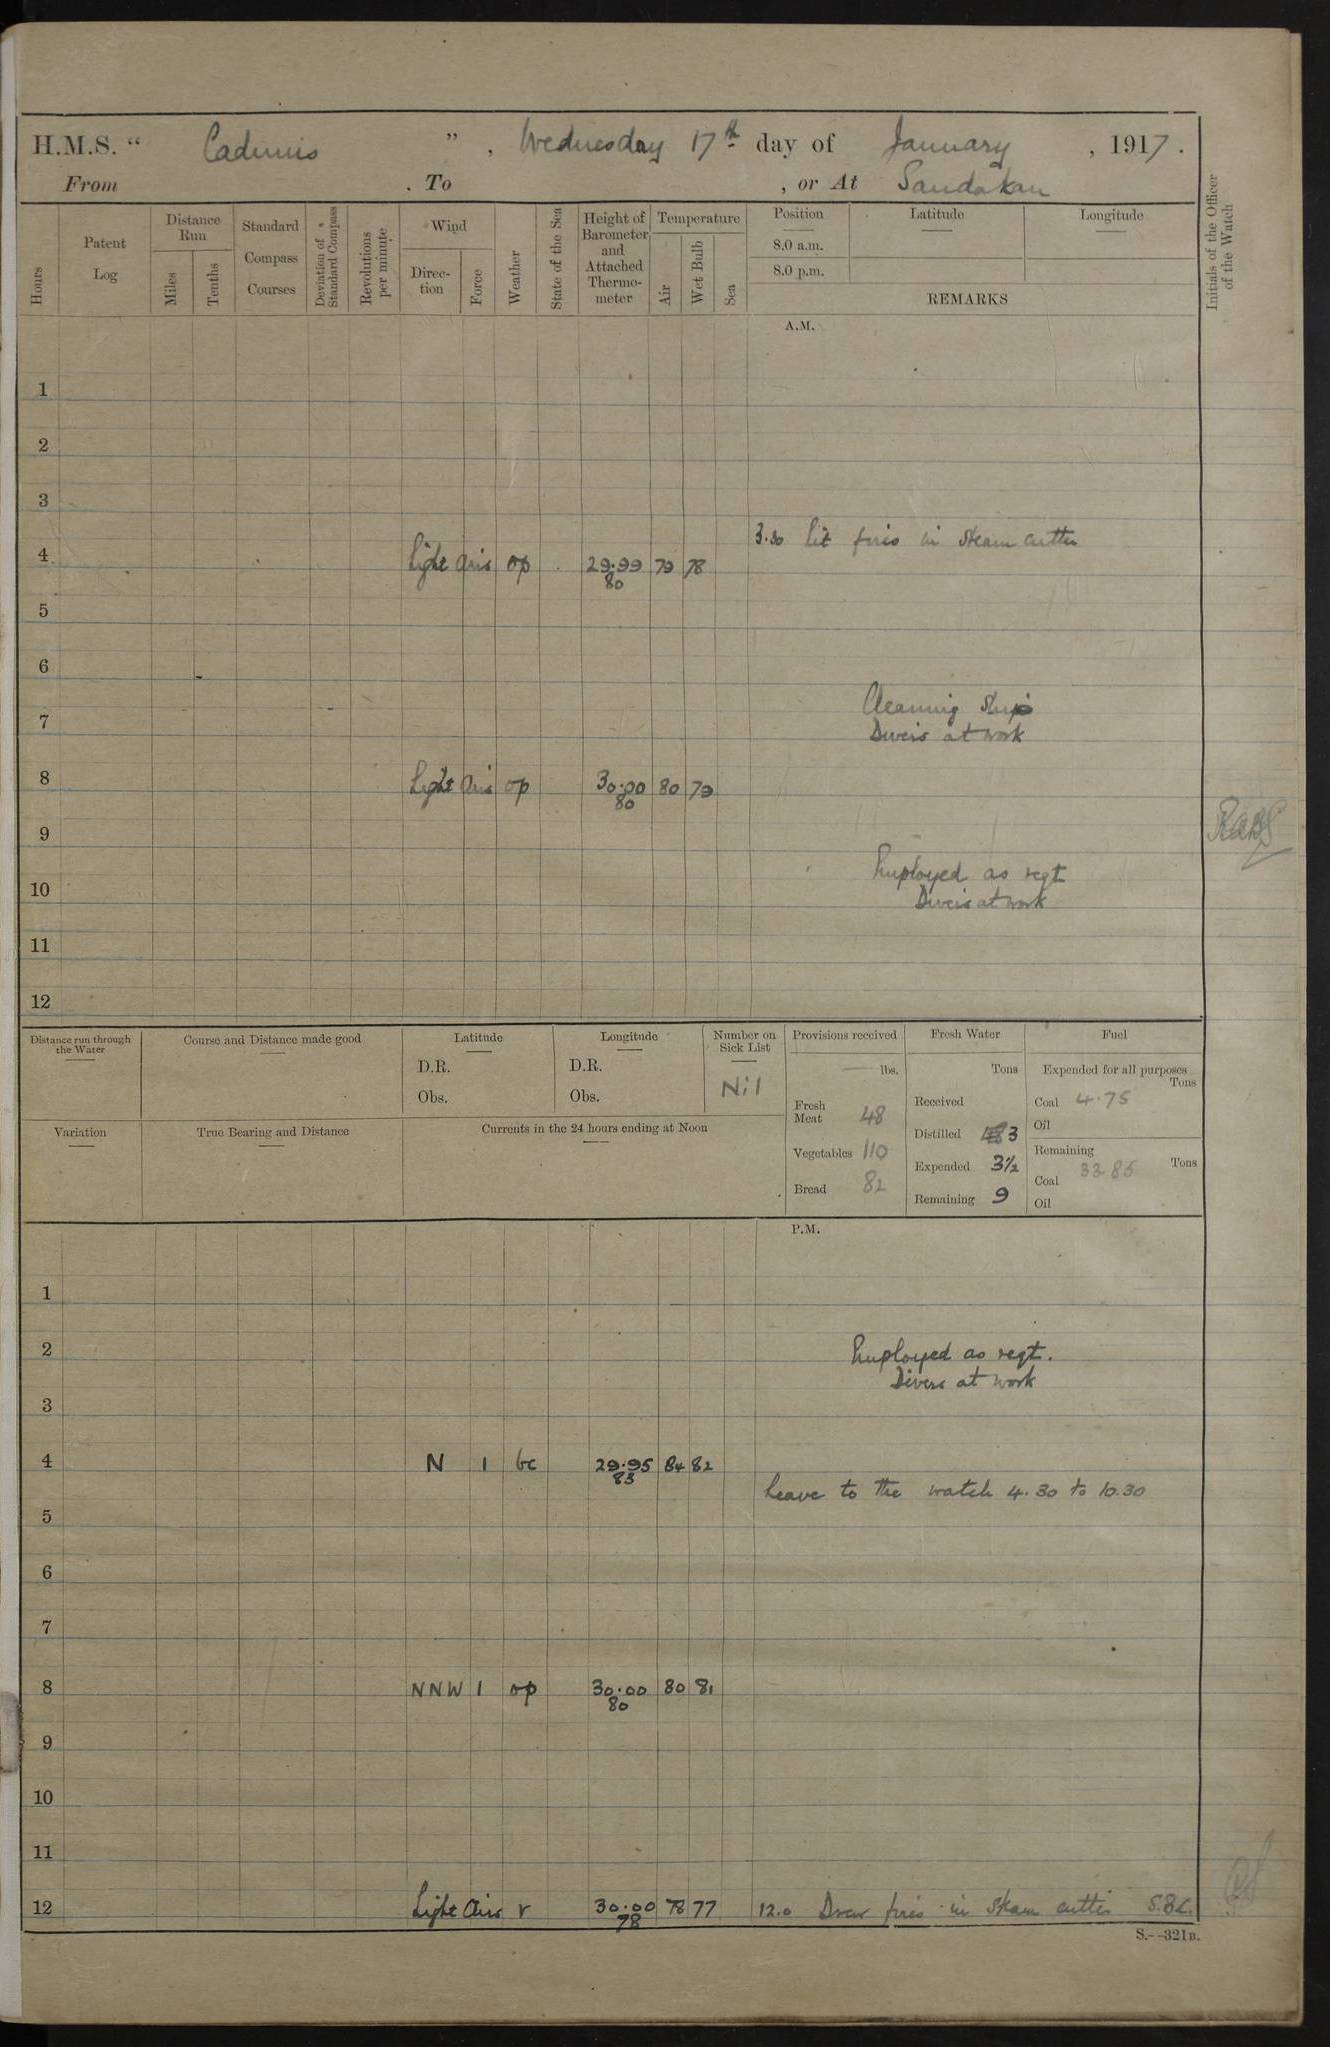 H.M.S. “ Cadmus ” , Wednesday 17th day of January , 1917.
From . To , or At Sandakan
Hours
Patent Log
Distance Run
Miles
Tenths
Standard Compass Courses
Deviation of Standard Compass
Revolutions per minute
Wind
Direc- tion
Force
Weather
State of the Sea
Height of Barometer and Attached Thermo- meter
Temperature
Air
Wet Bulb
Sea
Position Latitude Longitude
8.0 a.m.
8.0 p.m.
REMARKS
Initials of the Officer of the Watch
A.M.
1
2
3
3.30 Lit fires in steam cutter
4 Light airs op 29.99 79 78
80
5
6
Cleaning ship
7
Divers at work
8 Light airs op 30.00 80 79
80
9
Employed as reqt
10
Divers at work
11
12
Distance run through the Water
Course and Distance made good
Latitude
D.R.
Obs.
Longitude
D.R.
Obs.
Number on Sick List
Nil
Provisions received
lbs.
Fresh Meat 48
Vegetables 110
Bread 82
Fresh Water
Tons
Received
Distilled 3
Expended 3½
Remaining 9
Fuel
Expended for all purposes
Tons
Coal 4.75
Oil
Remaining
Tons
Coal 33.85
Oil
Variation
True Bearing and Distance
Currents in the 24 hours ending at Noon
P.M.
1
2 Employed as reqt.
Divers at work
3
4 N 1 bc 29.95 84 82
83
Leave to the watch 4.30 to 10.30
5
6
7
8 NNW 1 op 30.00 80 81
80
9
10
11
12 Light airs r 30.00 78 77 12.0 Drew fires in steam cutter S.B.C.
78
S.—321B.